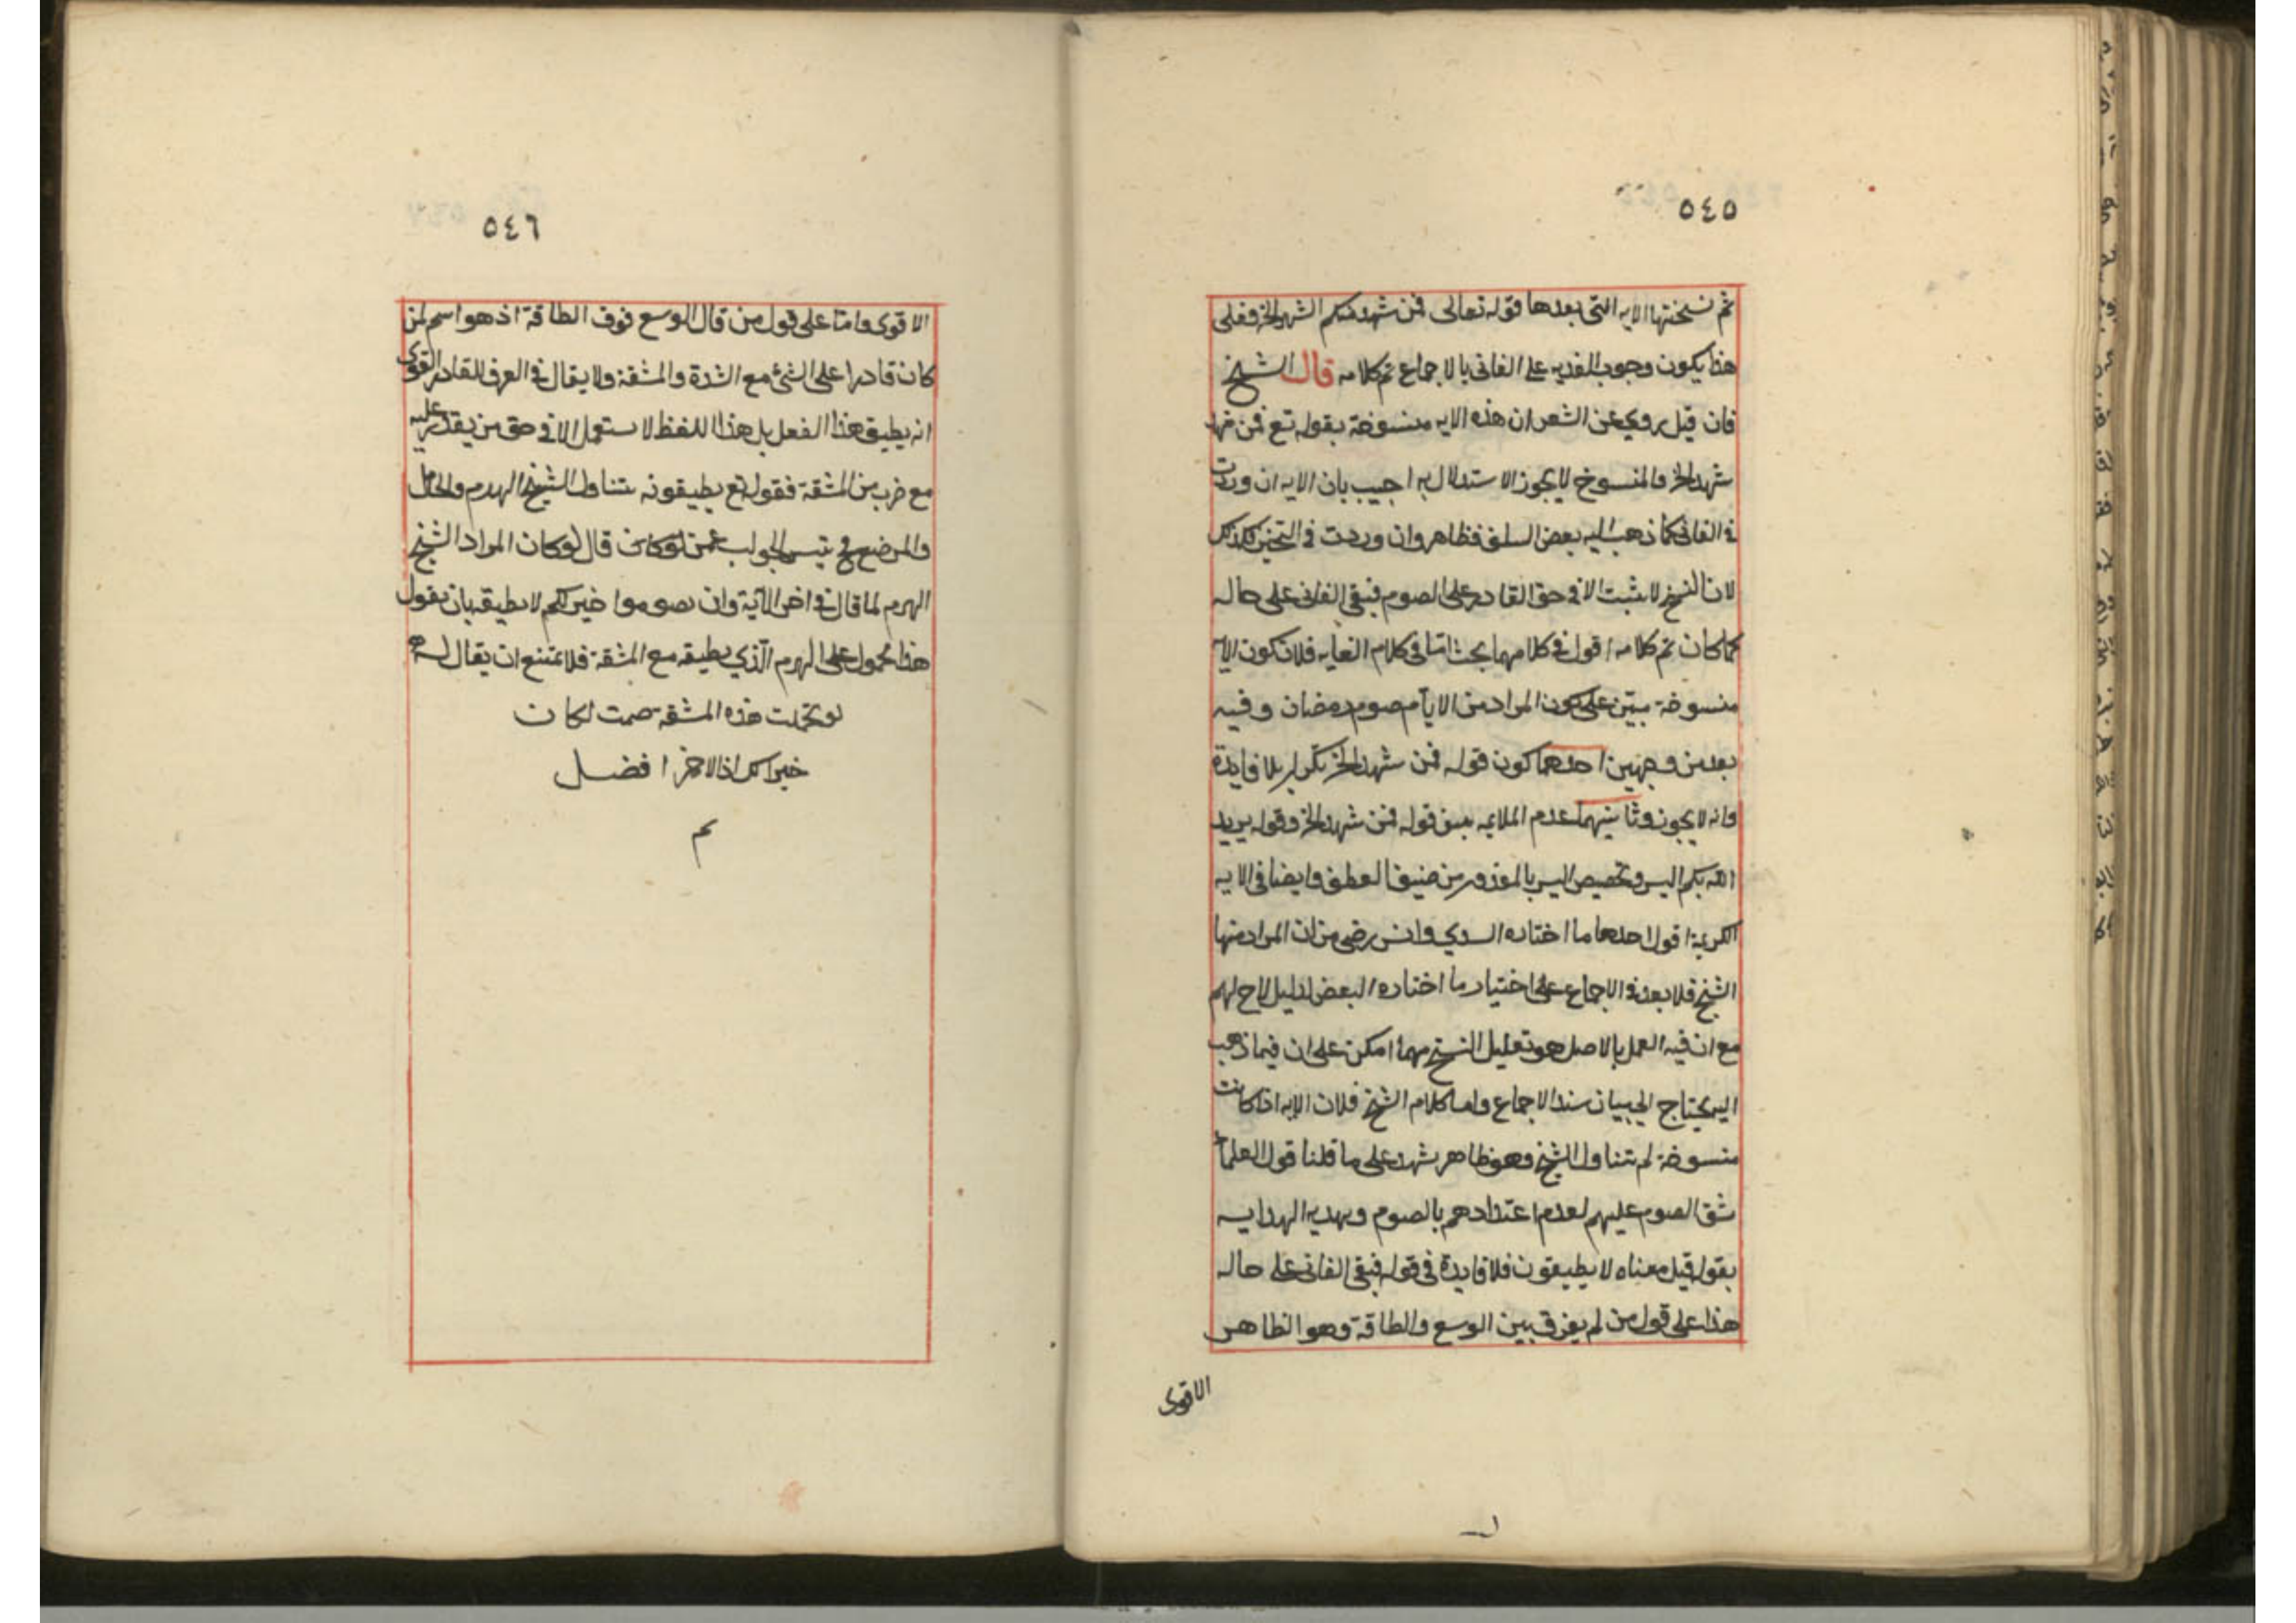 ٥٤٥
ثم نسختها الايه التى بعدها قوله تعالى فمن شهد منكم الشهر الخ فعلى
هذا يكون وجوب الفديه على الفانى بالاجماع تم كلامه قال الشيخ
فان قيل روي عن الشعر ان هذه الايه منسوخة بقوله تع فمن
شهد الخ والمنسوخ لا يجوز الاستدلال به اجيب بان الايه ان وردت
فى الفانى كما ذهب اليه بعض السلف فظاهر وان وردت فى التخيير فكذلك
لان النسخ لا يثبت الا فى حق القادر على الصوم فبقى الفانى على حاله
كما كان تم كلامه اقول فى كلامهما بحث امّا فى كلام الغايه فلان كون الآيه
منسوخة مبيّن على كون المراد من الايّام صوم رمضان وفيه
بعد من وجهين احدهما كون قوله فمن شهد الخ تكرار بلا فايدة
وانه لا يجوز وثانيهما عدم الملايمه بين قوله فمن شهد الخ وقوله يريد
الله بكم اليسر وتخصيص اليسر بالمعذور من ضيق العطف وايضا فى الايه
الكريمة اقول احدها ما اختاره السدي وانس رضى من ان المراد منها
الشيخ فلا بعد فى الاجماع على اختيار ما اختاره البعض لدليل لاح لهم
مع ان فيه العمل بالاصل هو تعليل النسخ مهما امكن على ان فيما ذهب
اليه يحتاج الى بيان سند الاجماع واما كلام الشيخ فلان الايه اذا كانت
منسوخة لم تتناول الشيخ وهو ظاهر شهد على ما قلنا قول العلماء
شق الصوم عليهم لعدم اعتدادهم بالصوم ويهديه الهدايه
بقوله قيل معناه لا يطيقون فلا فايدة فى قوله فبقى الفانى على حاله
هذا على قول من لم يفرق بين الوسع والطاقة وهو الظاهر
الاقوى
٥٤٦
الاقوى وامّا على قول من قال الوسع فوق الطاقة اذ هو اسم لمن
كان قادرا على الشئ مع الشدة والمشقة ولا يقال فى العرف للقادر القوى
انه يطيق هذا الفعل بل هذا اللفظ لا يستعمل الا فى حق من يقدر عليه
مع ضرب من المشقة فقوله تع يطيقونه يتناول الشيخ الهرم والحامل
والمرضع فح تيسر الجواب عمن قال لو كان المراد الشيخ
الهرم لما قال فى اخر الآية وان تصوموا خير لكم لا يطيقه بان يقول
هذا محمول على الهرم الّذي يطيقه مع المشقة فلا يمتنع ان يقال له
لو تحملت هذه المشقة صمت لكان
خيرا لك اذ الاحمز افضل
تم